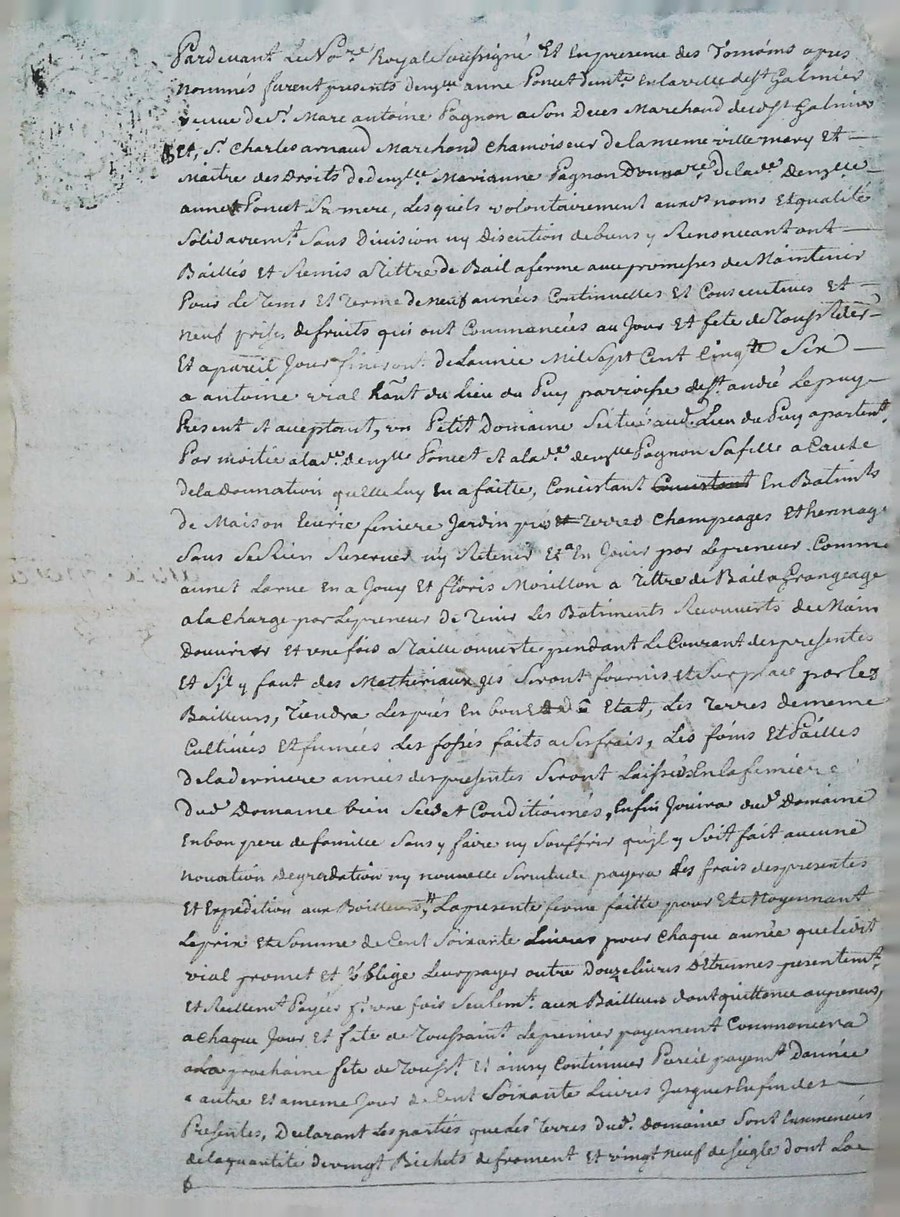 Pardevant Le No.re Royal Soussigné Et En presence des Temoins apres
nommés furent presents dem.lle anne Poncet demte En la ville de st Galmier
veuve de Sr. Marc antoine Pagnon a Son Deces Marchand dud. st Galmier
Et, Sr. Charles arnaud Marchand Chamoiseur de la meme ville mary Et
Maitre des Droits de demlle. Marianne Pagnon Donnare. de lade. demlle
anne Poncet Sa mere, Lesquels volontairement auxds noms Et qualité
Solidairemt. Sans Division ny Discution de biens y Renonceant ont
Baillés Et Remis a Tittre de Bail a ferme avec promesses de Maintenir
Pour Le Tems Et Terme de neuf années Continuelles Et Consecutives Et
neuf prises de fruits qui ont Commancées au Jour Et fete de Toussts der.
Et a pareil Jour finiront de L'année Mil Sept Cent Cinqte Six
a antoine vial hant du Lieu du Puy parroisse de st. andré Le puy
Present Et acceptant, un Petit Domaine Scitué aud. Lieu du Puy apartent.
Par moitié a lade. demlle Poncet Et a lade. demlle Pagnon Sa fille a Cause
de la Donnation qu'elle Luy En a faitte, Concistant Concistant En Batimts
de Maison Ecurie feniere Jardin prés Et Terres Champeages Et hermage
Sans Se Rien Reserver ny Retenir Et En Jouir par Le preneur Comme
annet Larue En a Jouy Et floris Morillon a Tittre de Bail a Grangeage
a la Charge par Le preneur de Tenir Les Batiments Recouverts de Main
D'ouvrier Et une fois a Taille ouverte pendant Le Courant des presentes
Et S'il y faut des Matheriaux ils Seront fournis Et Sur place par les
Bailleurs, Tiendra Les prés En bon Etat, Les Terres de meme
Cultivées Et fumées Les fossés faits a Ses frais, Les foins Et Pailles
de la derniere années des presentes Seront Laissés En la feniere
dud. Domaine bien Secs Et Conditionnés, Enfin Jouira dud. Domaine
En bon pere de famille Sans y faire ny Souffrir qu'il y Soit fait aucune
novation degradation ny nouvelle Servitude payera Les frais des presentes
Et Expedition aux Bailleurs, La presente ferme faitte pour Et Moyennant
Le prix Et Somme de Cent Soixante Livres pour Chaque année que ledit
vial promet Et oblige Leur payer outre Douze Livres D'Etrennes presentemt.
Et Reellemt. Payées pr. une fois Seulemt. aux Bailleurs dont quittance au preneur,
a Chaque Jour Et fete de Toussaint. Le premier payement Commancera
a La prochaine fete de Tousst. Et ainsy Continuer Pareil payemt. D'année
a autre Et a meme Jour de Cent Soixante Livres Jusques En fin des
Presentes, Declarant Les parties que Les Terres dud. Domaine Sont Ensemencées
de la quantité de vingt Bichets de froment Et vingt neuf de Seigle dont Le